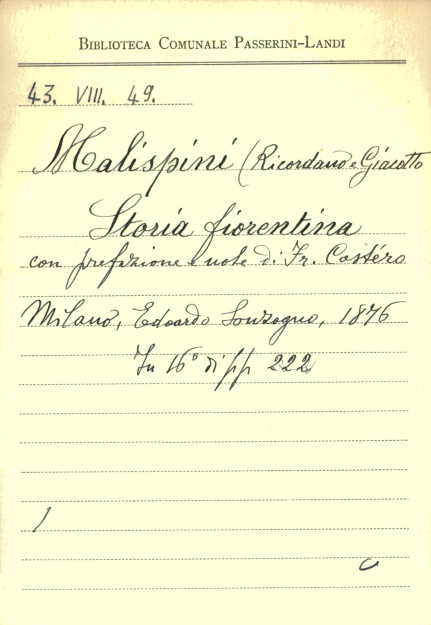 BIBLIOTECA COMUNALE PASSERINI-LANDI
43. VIII. 49.
Malispini (Ricordano e Giacotto
Storia fiorentina
con prefazione e note di Fr. Costéro
Milano, Edoardo Sonzogno, 1876
In 16° di pp 222